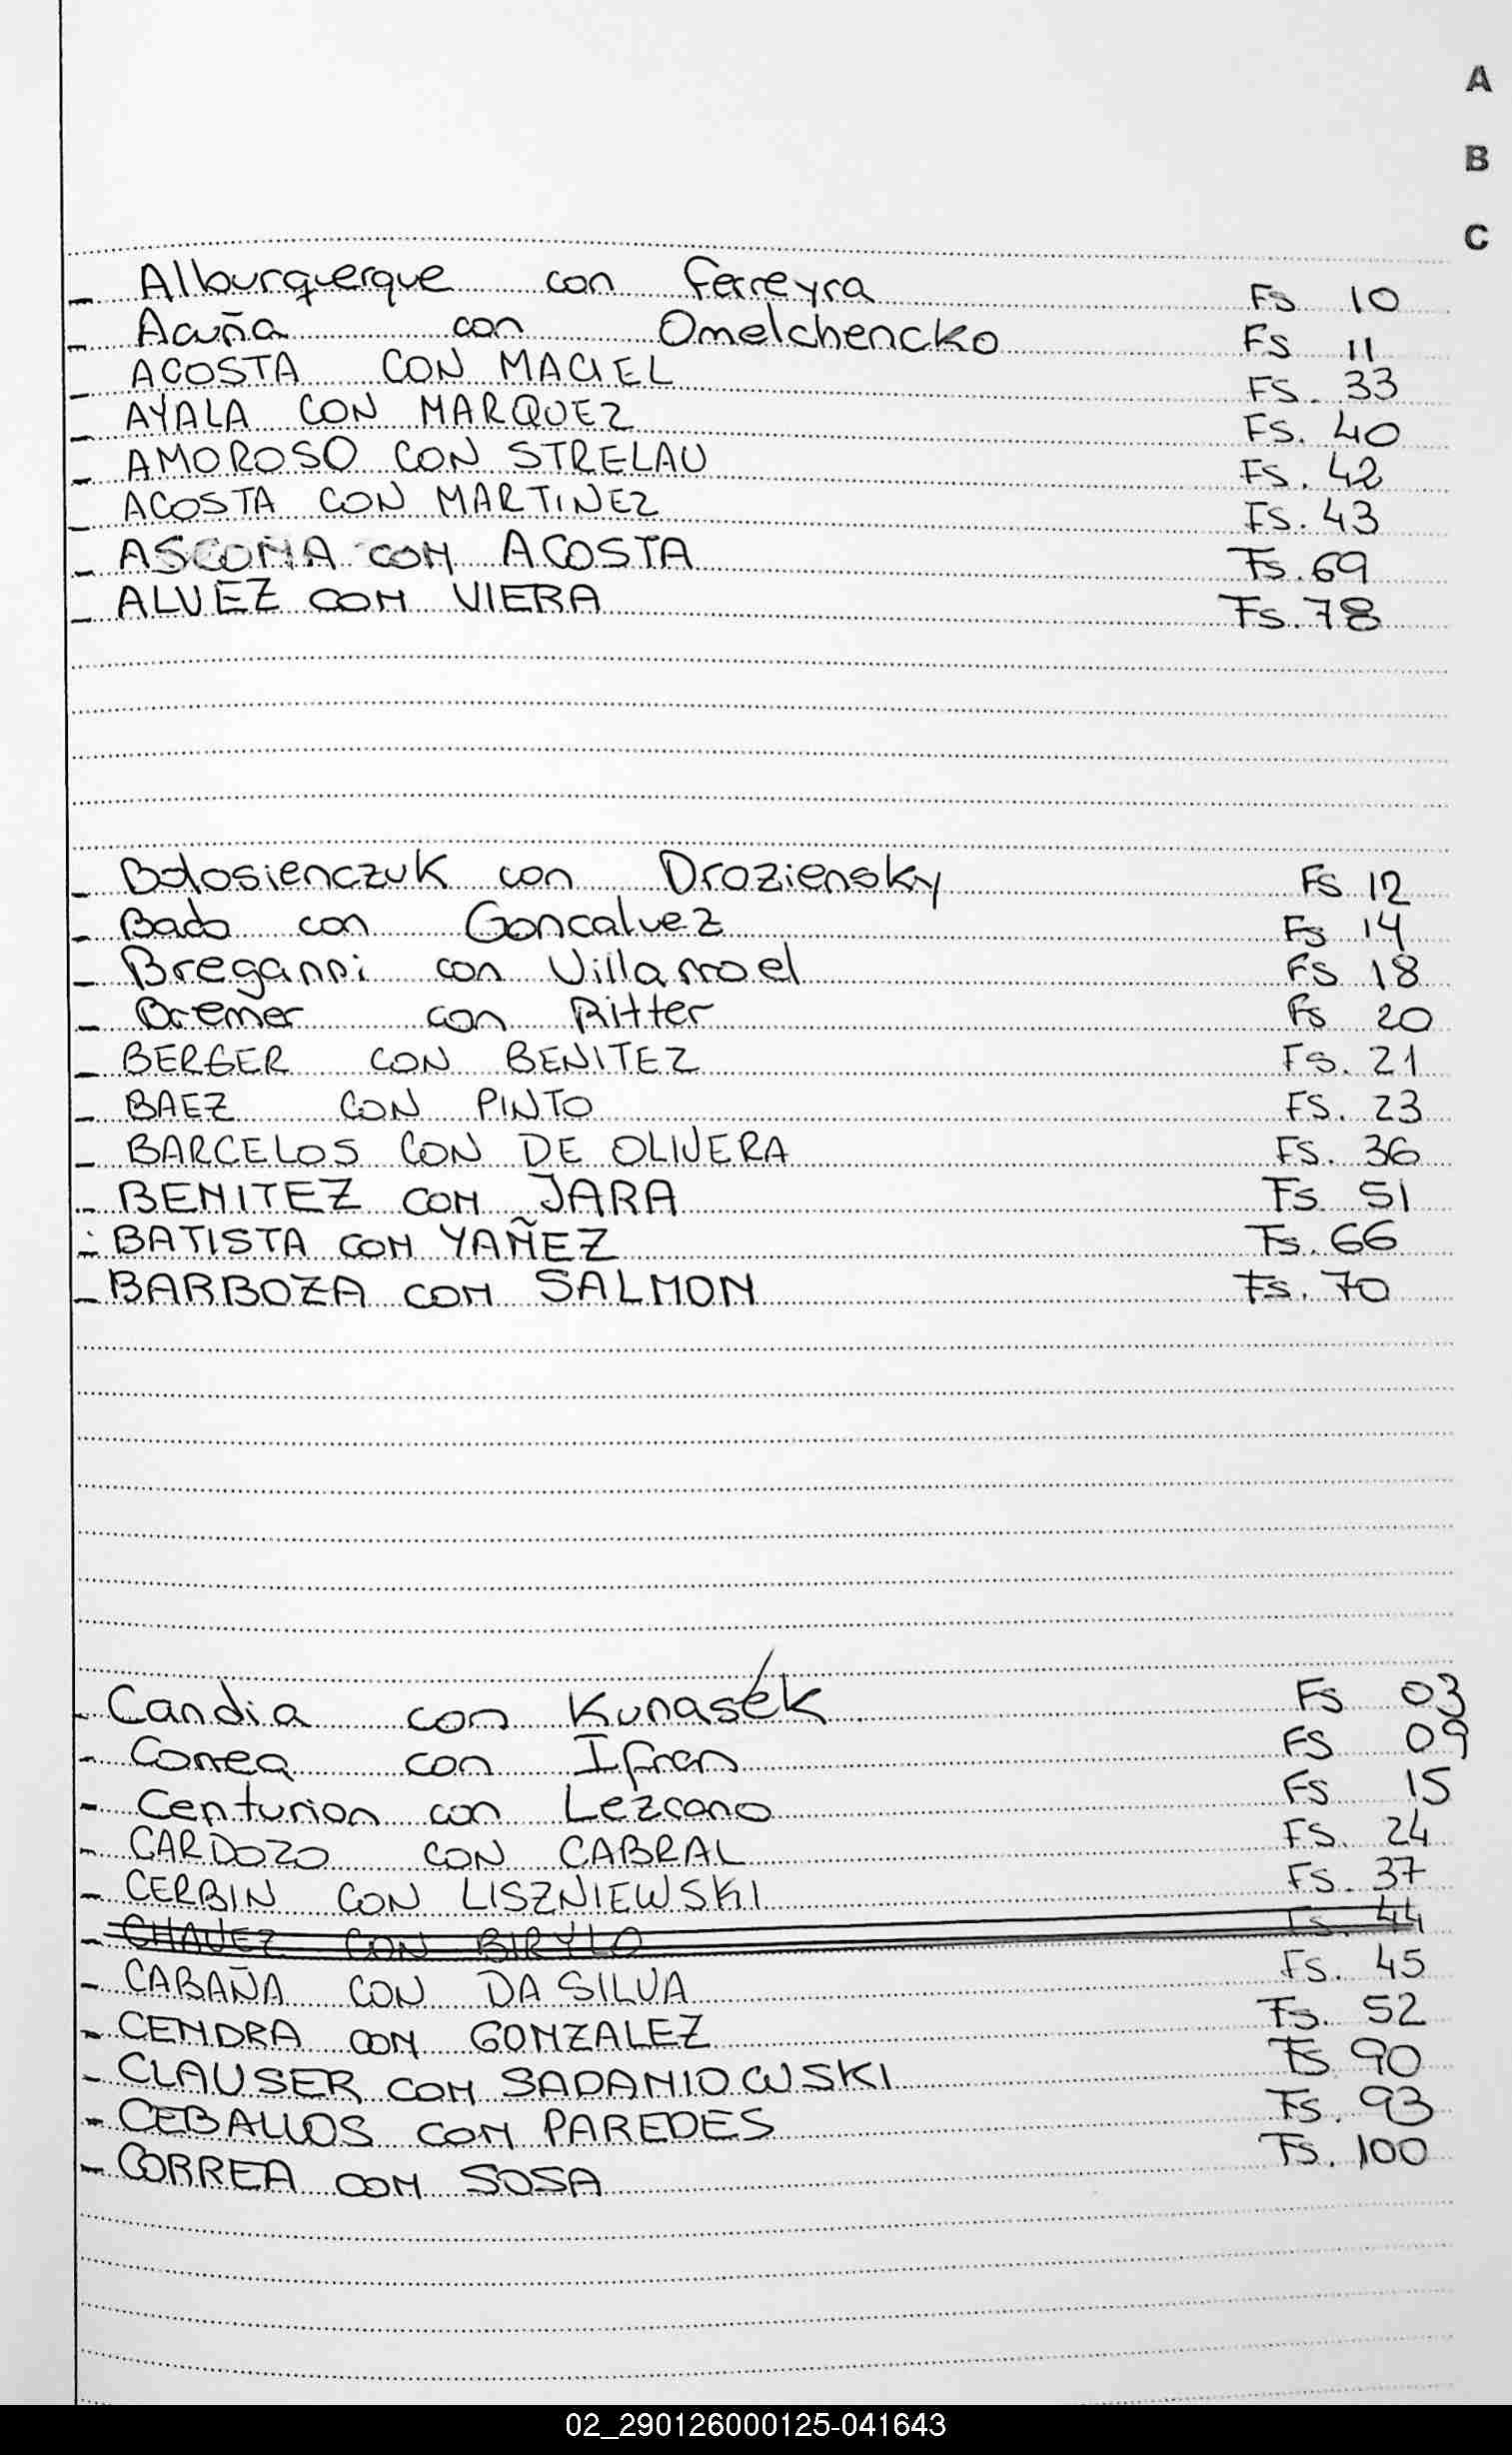 A
B
C
- Alburquerque con Ferreyra Fs 10
- Acuña con Omelchencko Fs 11
- ACOSTA CON MACIEL FS. 33
- AYALA CON MARQUEZ FS. 40
- AMOROSO CON STRELAU FS. 42
- ACOSTA CON MARTINEZ FS. 43
- ASCONA CON ACOSTA Fs. 69
- ALVEZ CON VIERA Fs. 78
- Bolosienczuk con Droziensky Fs 12
- Bado con Goncalvez Fs 14
- Breganni con Villarroel Fs 18
- Bremer con Ritter Fs 20
- BERGER CON BENITEZ FS. 21
- BAEZ CON PINTO FS. 23
- BARCELOS CON DE OLIVERA FS. 36
- BENITEZ CON JARA Fs 51
- BATISTA CON YAÑEZ Fs. 66
- BARBOZA CON SALMON Fs. 70
- Candia con Kunasek Fs 03
- Correa con Ifran FS 09
- Centurion con Lezcano Fs 15
- CARDOZO CON CABRAL FS. 24
- CERBIN CON LISZNIEWSKI FS. 37
- CHAVEZ CON BIRYLO FS. 44
- CABAÑA CON DA SILVA FS. 45
- CENDRA CON GONZALEZ Fs. 52
- CLAUSER CON SADANIOWSKI Fs 90
- CEBALLOS CON PAREDES Fs. 93
- CORREA CON SOSA Fs. 100
02_290126000125-041643